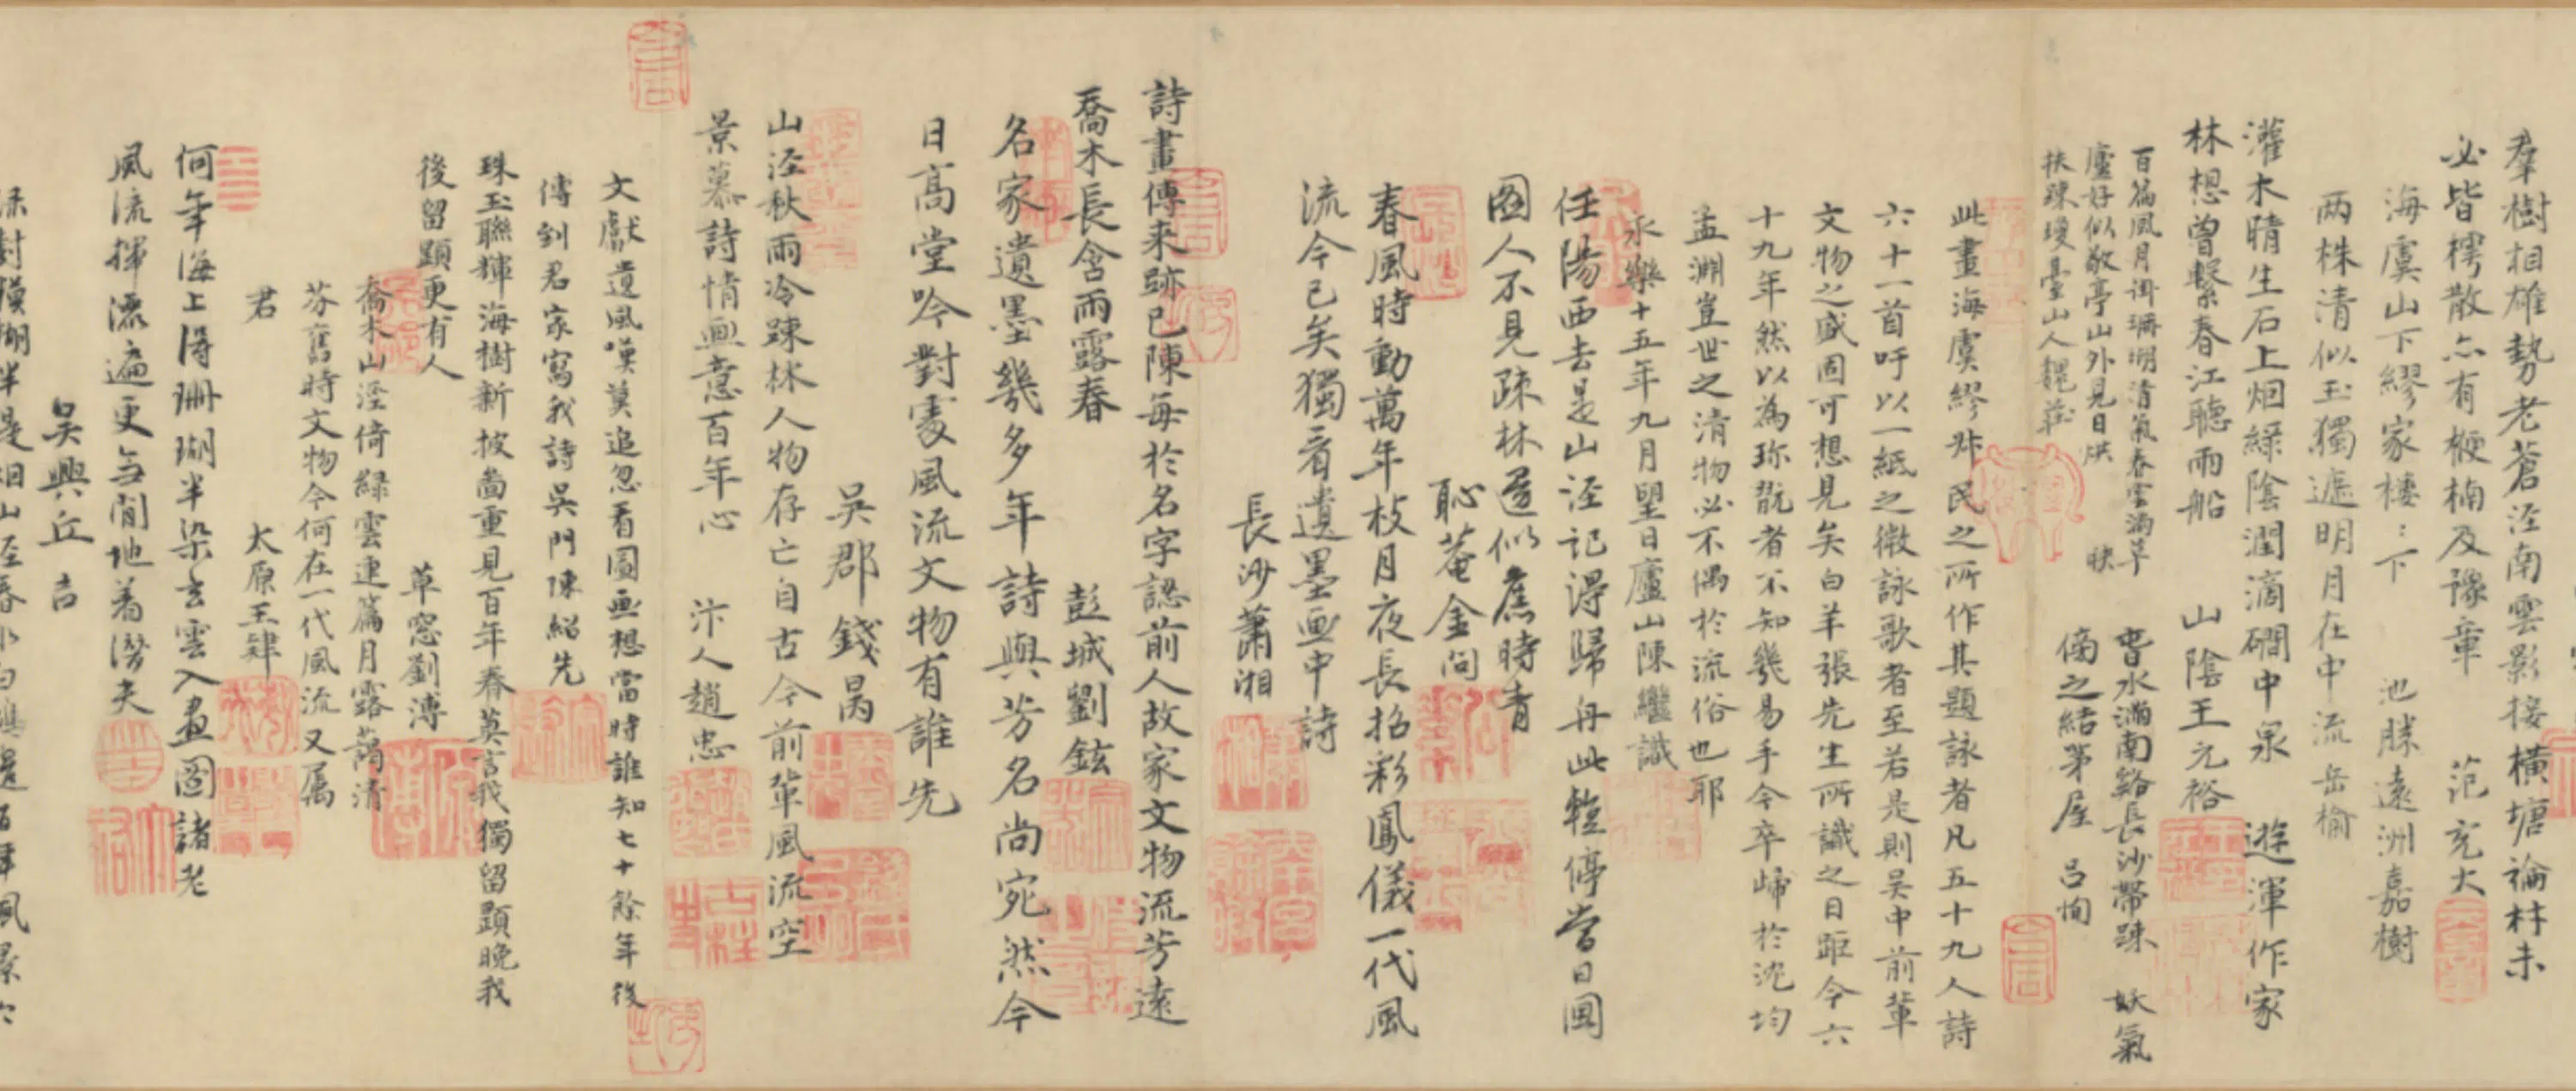 羣樹相雄勢老蒼涇南雲影接橫塘論材未
必皆樗散亦有楩楠及豫章　范充大
海虞山下繆家樓樓下　池勝遠洲嘉樹
兩株清似玉獨遮明月在中流岳榆
灌木晴生石上烟綠陰潤滴磵中泉　遊渾作家
林想曾繫春江聽雨船　山陰王元裕
百篇風月掛珊瑚清氣春雲滿草
廬好似敬亭山外見日烘
扶疎瓊臺山人
水滿南谿長沙帶疎　妖氣
傍之結茅屋　呂恂
此畫海虞繆叔民之所作其題詠者凡五十九人詩
六十一首吁以一紙之微詠歌者至若是則吳中前輩
文物之盛固可想見矣白羊張先生所識之日距今六
十九年然以為珎翫者不知幾易手今卒歸於沈均
孟淵豈世之清物必不偶於流俗也耶
永樂十五年九月望日廬山陳繼識
任陽西去是山涇記得歸舟此蹔停當日圖
圖人不見疎林還似舊時青
恥菴金問
春風時動萬年枝月夜長招彩鳳儀一代風
流今已矣獨看遺墨畫中詩
長沙蕭湘
詩畫傳来跡已陳每於名字認前人故家文物流芳遠
喬木長含雨露春　彭城劉鉉
名家遺墨幾多年詩與芳名尚宛然今
日高堂吟對處風流文物有誰先
吳郡錢昺
山涇秋雨冷疎林人物存亡自古今前輩風流空
景慕詩情畫意百年心　汴人趙忠
文獻遺風嘆莫追忽看圖画想當時誰知七十餘年後
傳到君家寫我詩吳門陳紹先
珠玉聯輝海樹新披圖重見百年春莫言我獨留題晚我
後留題更有人　草窓劉溥
喬木山涇倚綠雲連篇月露藹清
芬舊時文物今何在一代風流又属
君　太原王肄
何年海上得珊瑚半染玄雲入畫圖諸老
風流揮灑遍更無閒地着潛夫
吳興丘吉